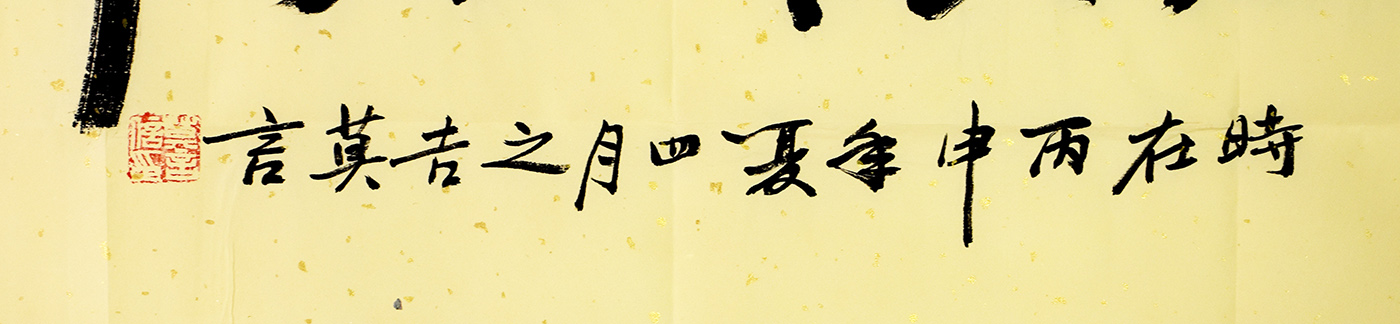 時在丙申年夏四月之吉莫言